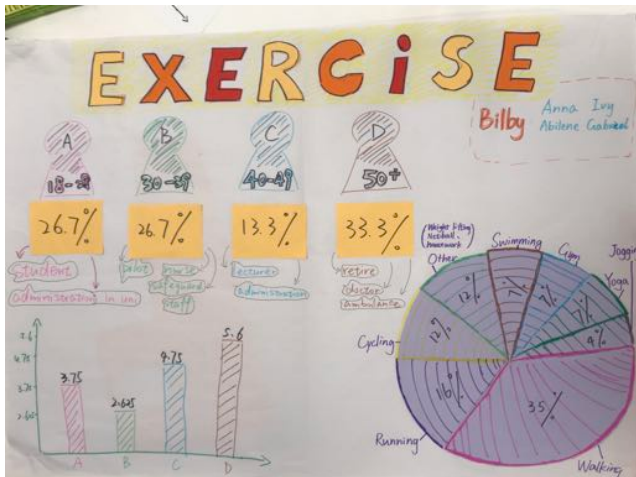 EXERCiSE
Bilby
Anna Ivy
Abilene Gabriel
A
B
C
D
18-29
30-39
40-49
50+
26.7%
26.7%
13.3%
33.3%
student
administration in uni
pilot
nurse
safeguard
staff
lecturer
administration
retire
doctor
ambulance
5.6
4.75
3.75
2.625
3.75
2.625
4.75
5.6
A
B
C
D
(Weight lifting
Netball
housework)
Other
Swimming
Gym
Jogging
Yoga
Cycling
Running
Walking
12%
7%
7%
7%
4%
12%
16%
35%